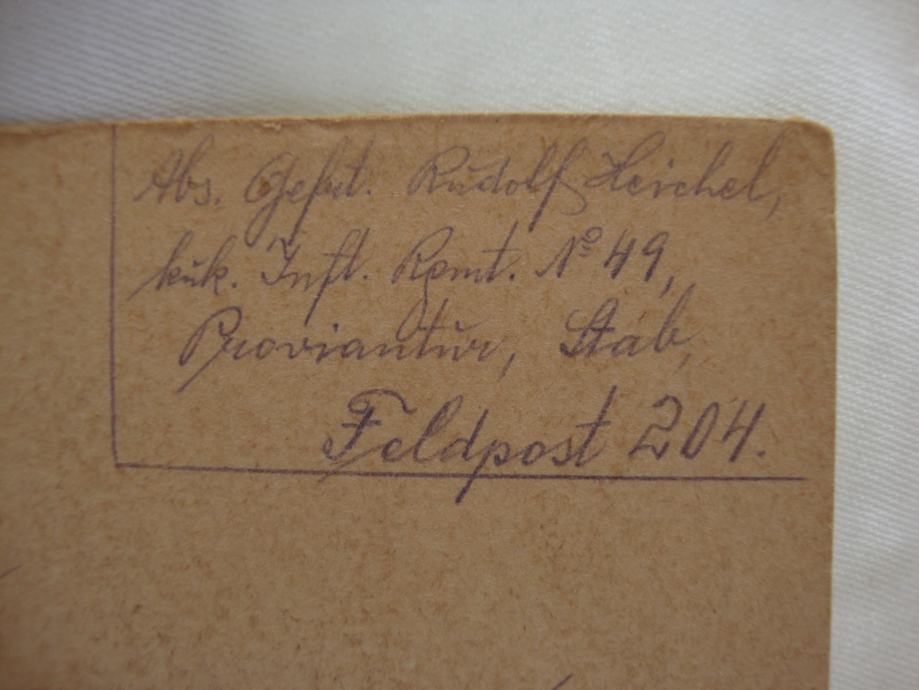 Abs. Gefrt. Rudolf Heichel,
kuk. Inft. Rgmt. Nº 49,
Proviantur, Stab,
Feldpost 204.